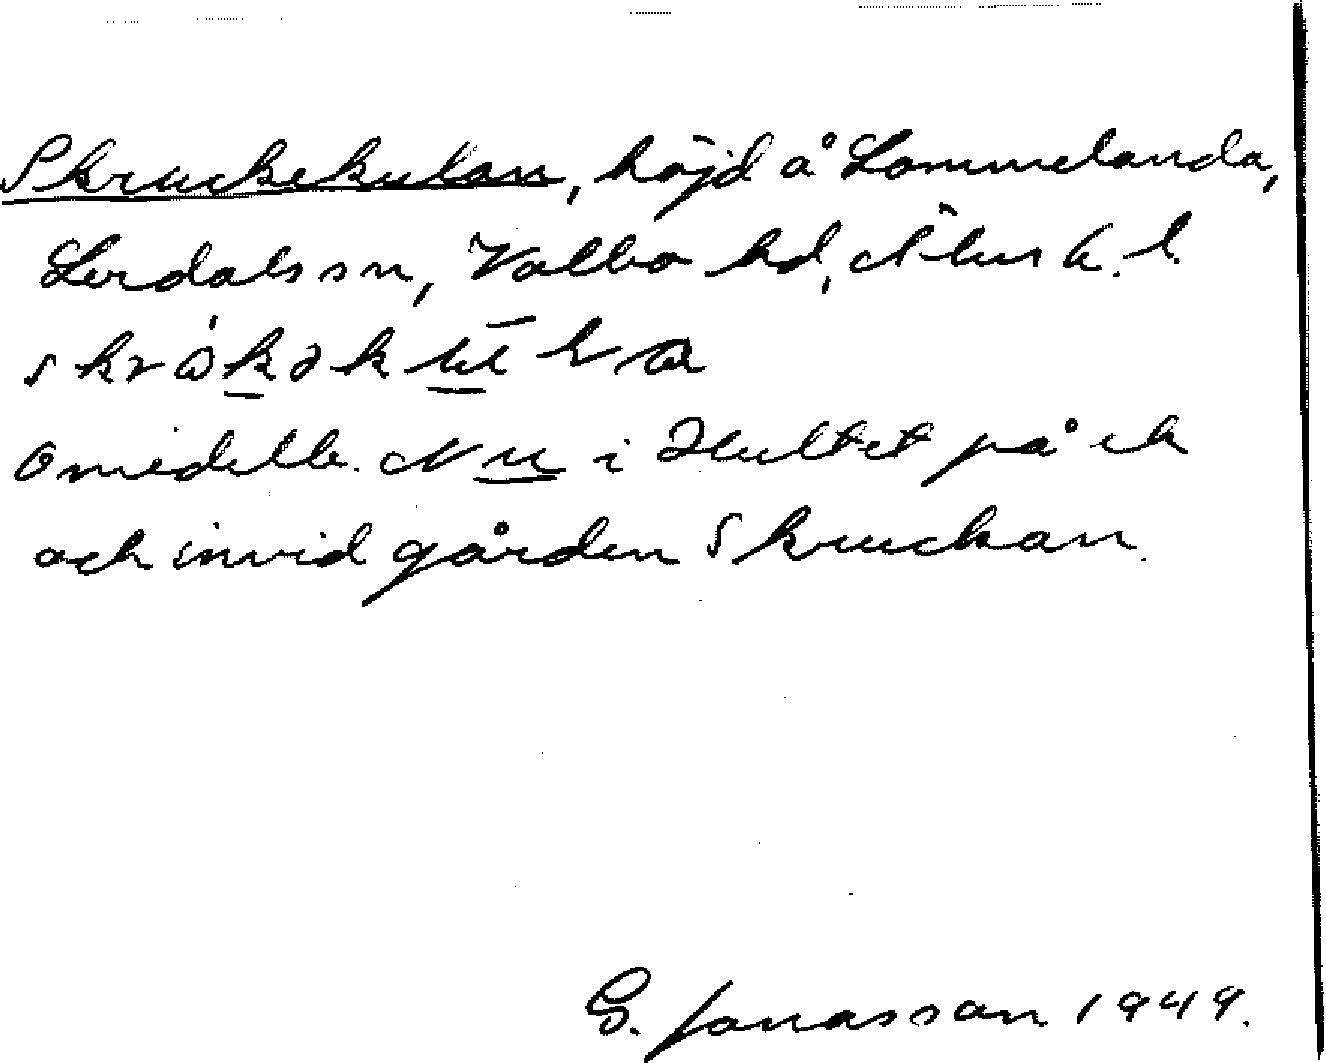 Skruckekulan, höjd å Lommelanda,
Lerdals sn, Valbo hd, Älvsb. l.
omedelb. NU i Hultet på ek
och invid gården Skruckan.
G. Jonasson 1949.